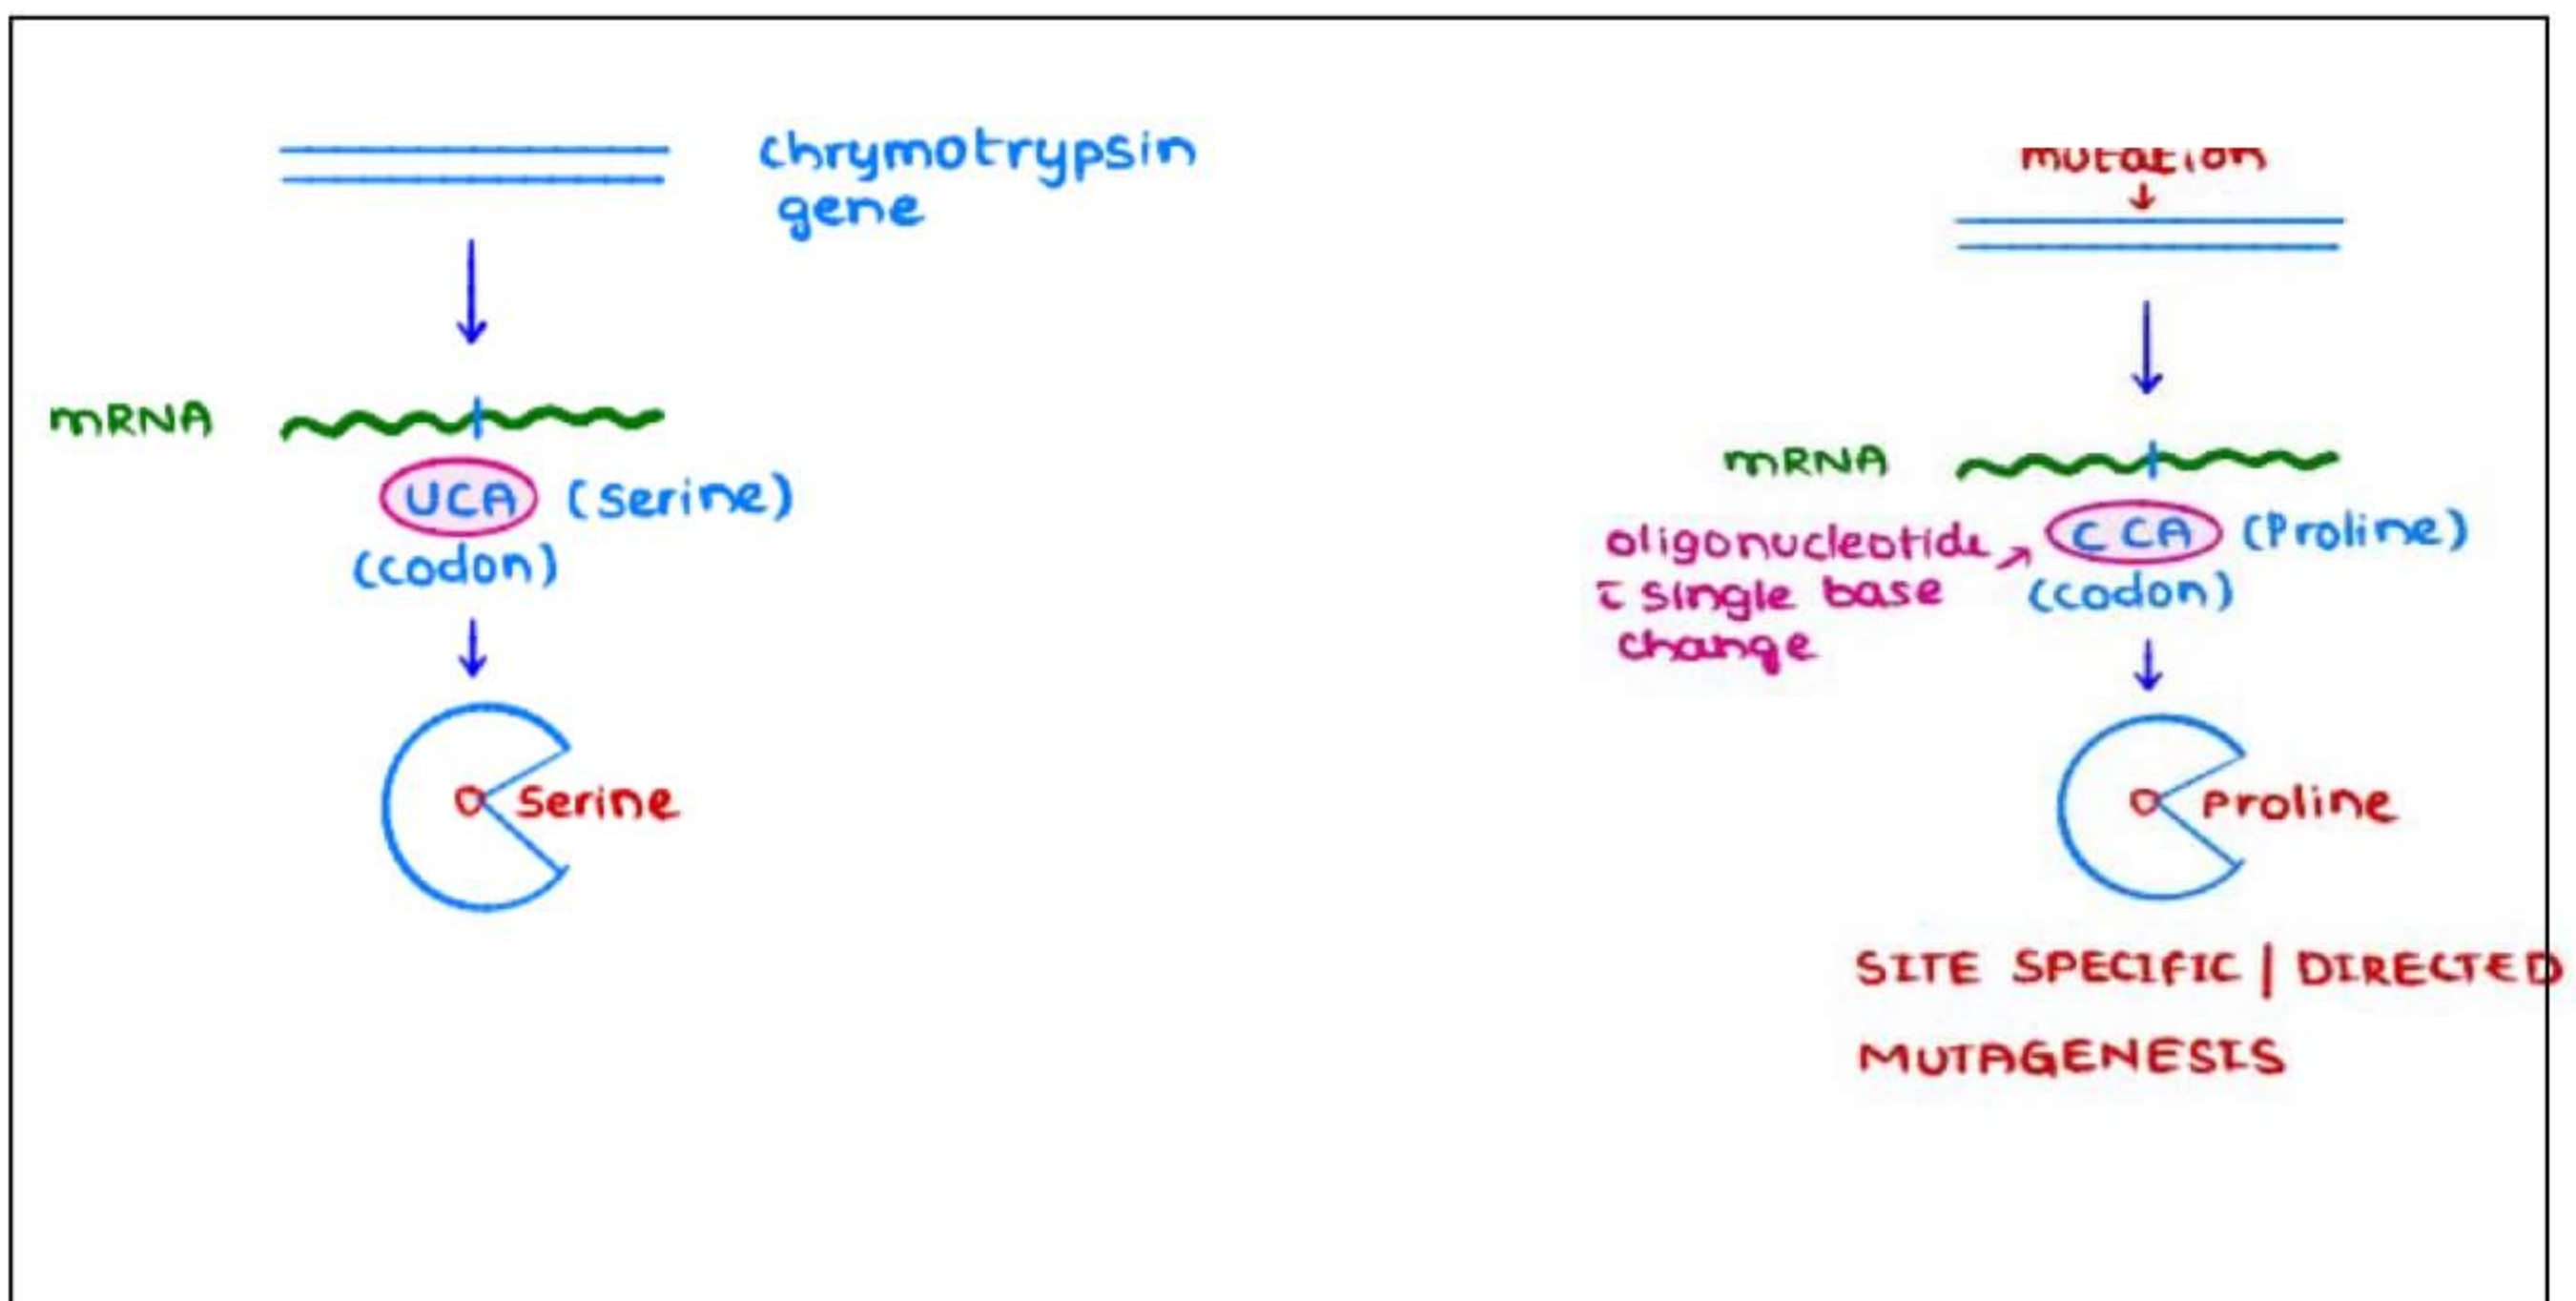 chrymotrypsin
gene
mRNA
UCA (serine)
(codon)
serine
mutation
mRNA
CCA (Proline)
oligonucleotide
c̄ single base
change
(codon)
proline
SITE SPECIFIC | DIRECTED
MUTAGENESIS